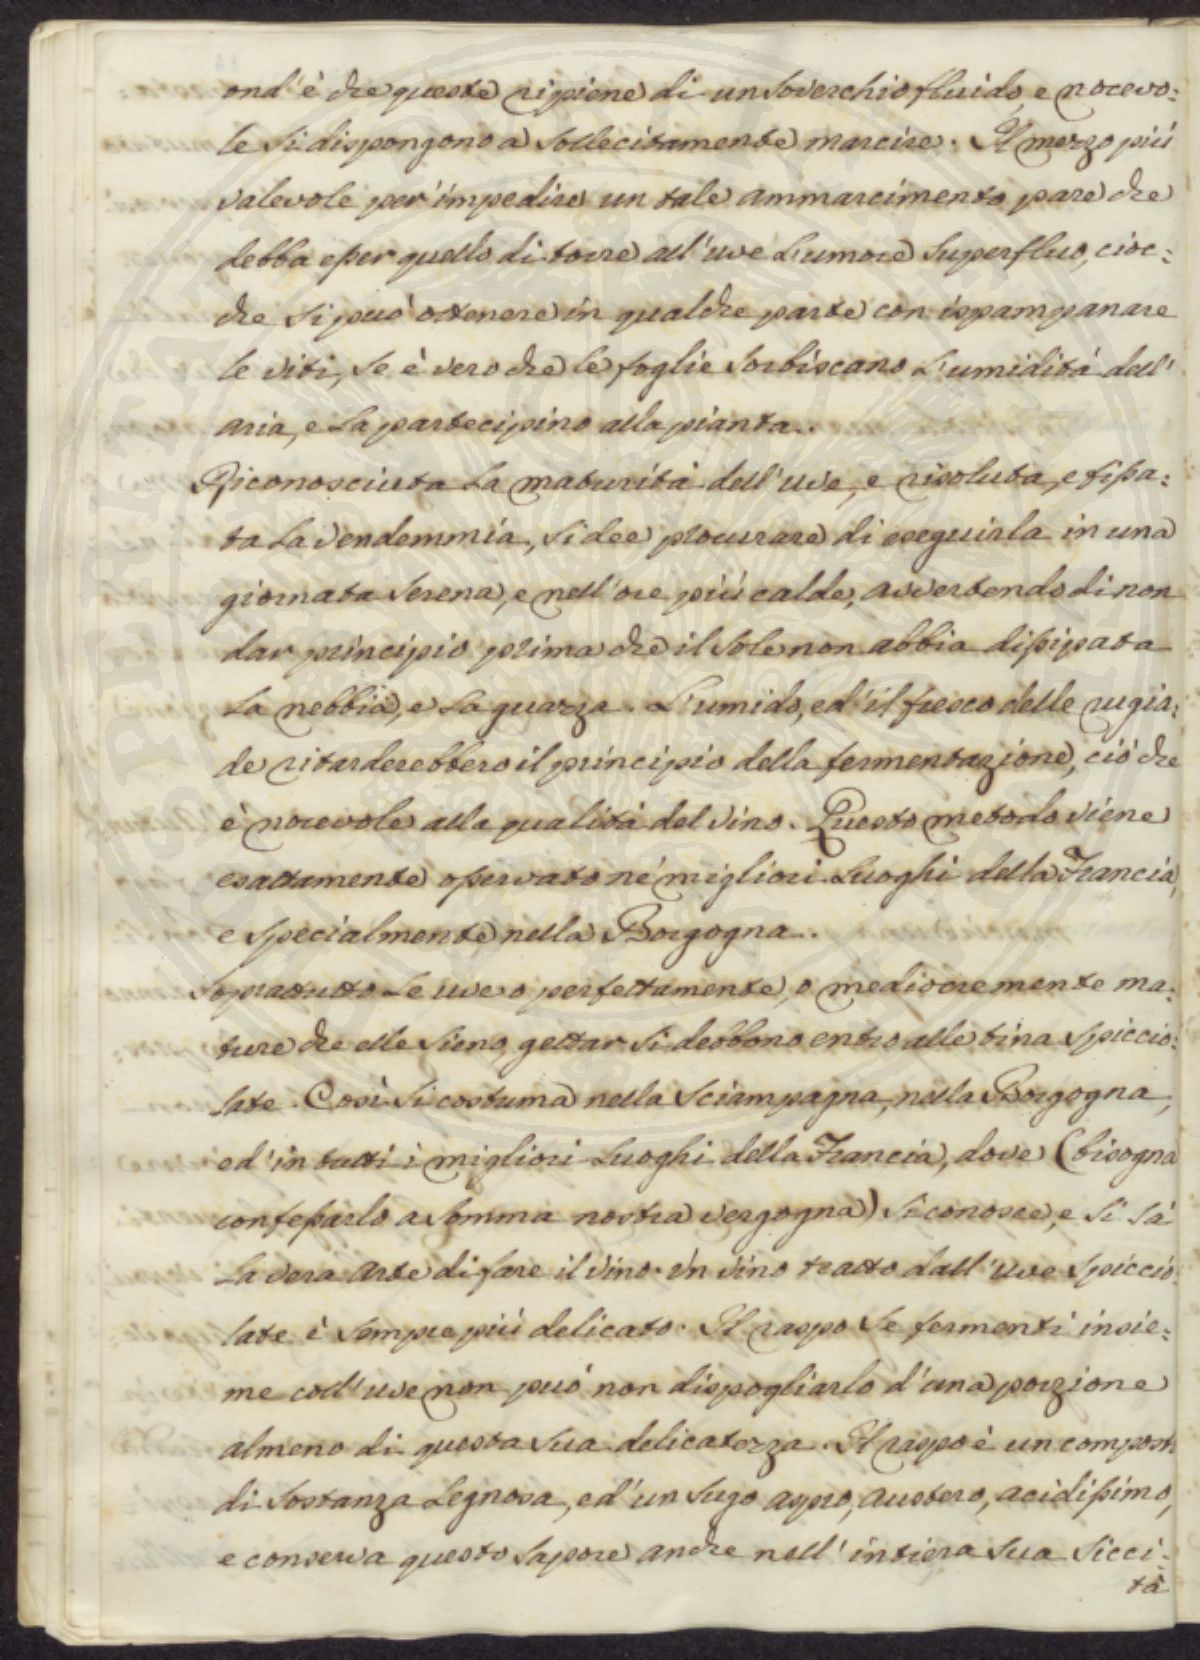 ond'è che queste ripiene di un soverchio fluido, e nocevo:
le si dispongono a sollecitamente marcire. Il mezzo più
valevole per impedire un tale ammarcimento pare che
debba esser quello di torre all'uve l'umore superfluo, cioc:
che si può ottenere in qualche parte con ispampanare
le viti, se è vero che le foglie sorbiscano l'umidità dell'
aria, e la partecipino alla pianta.
Riconosciuta la maturità dell'uve, e risoluta, e fissa:
ta la vendemmia, si dee procurare di eseguirla in una
giornata serena, e nell'ore più calde, avvertendo di non
dar principio prima che il sole non abbia dissipata
la nebbia, e la guazza. L'umido, ed'il fresco delle rugia:
de ritarderebbero il principio della fermentazione, ciò che
è nocevole alla qualità del vino. Questo metodo viene
esattamente osservato né migliori luoghi della Francia,
e specialmente nella Borgogna.
Sopratutto le uve o perfettamente, o mediocremente ma:
ture che elle sieno, gettar si debbono entro alle tina spiccio:
late. Così si costuma nella Sciampagna, nella Borgogna,
ed'in tutti i migliori luoghi della Francia, dove (bisogna
confessarlo a somma nostra vergogna) si conosce, e si sà
la vera arte di fare il vino. Un vino tratto dall'uve spiccio
late è sempre più delicato. Il raspo se fermenti insie:
me coll'uve non può non dispogliarlo d'una porzione
almeno di questa sua delicatezza. Il raspo è un composto
di sostanza legnosa, ed'un sugo aspro, austero, acidissimo,
e conserva questo sapore anche nell'intiera sua sicci:
tà
PROSPERITATI